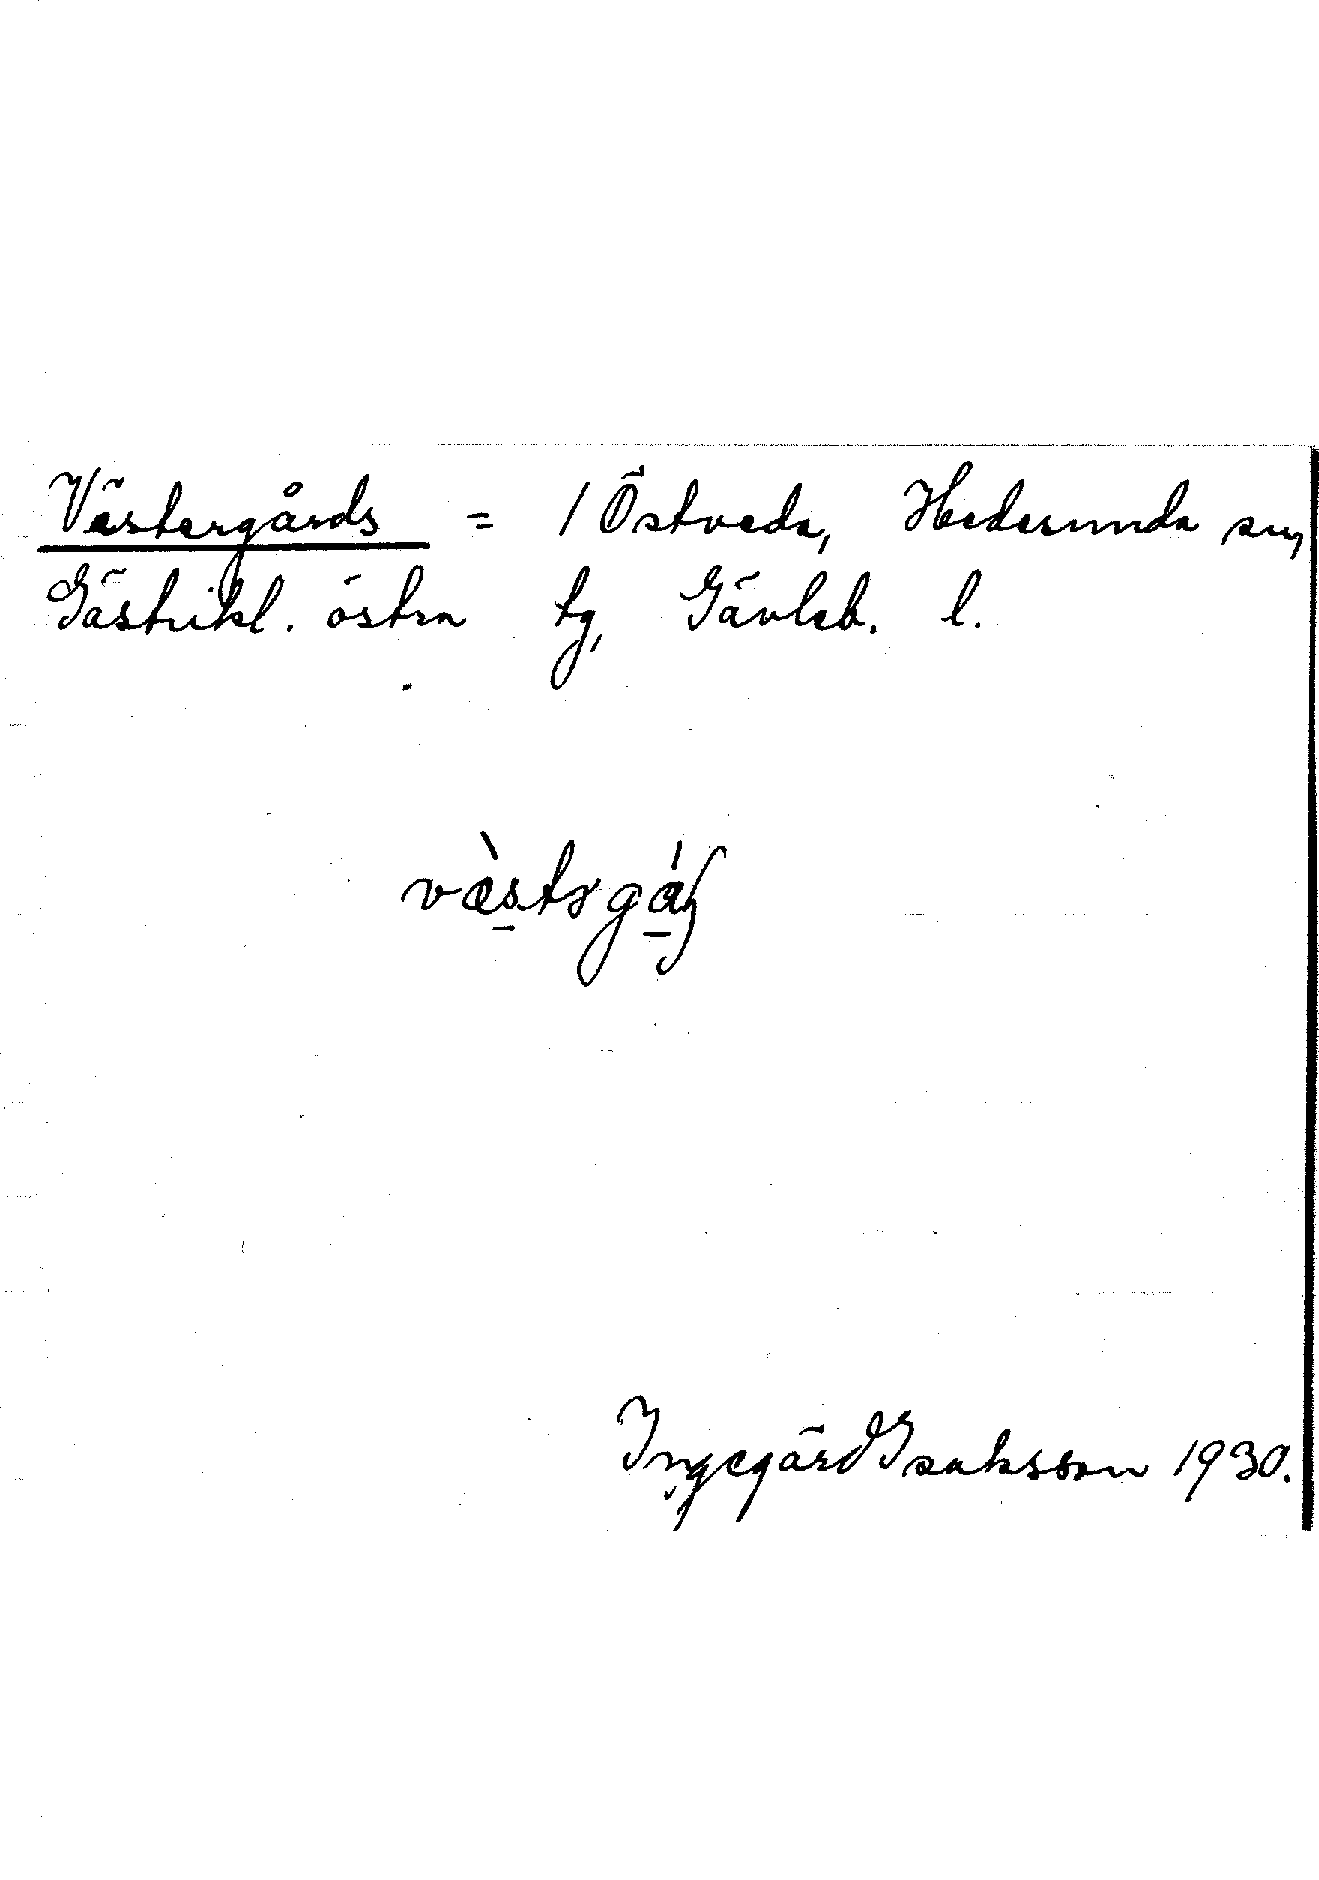 Västergårds = 1 Östveda, Hedesunda sn,
Gästrikl. östra tg, Gävleb. l.
Ingegärd Isaksson 1930.